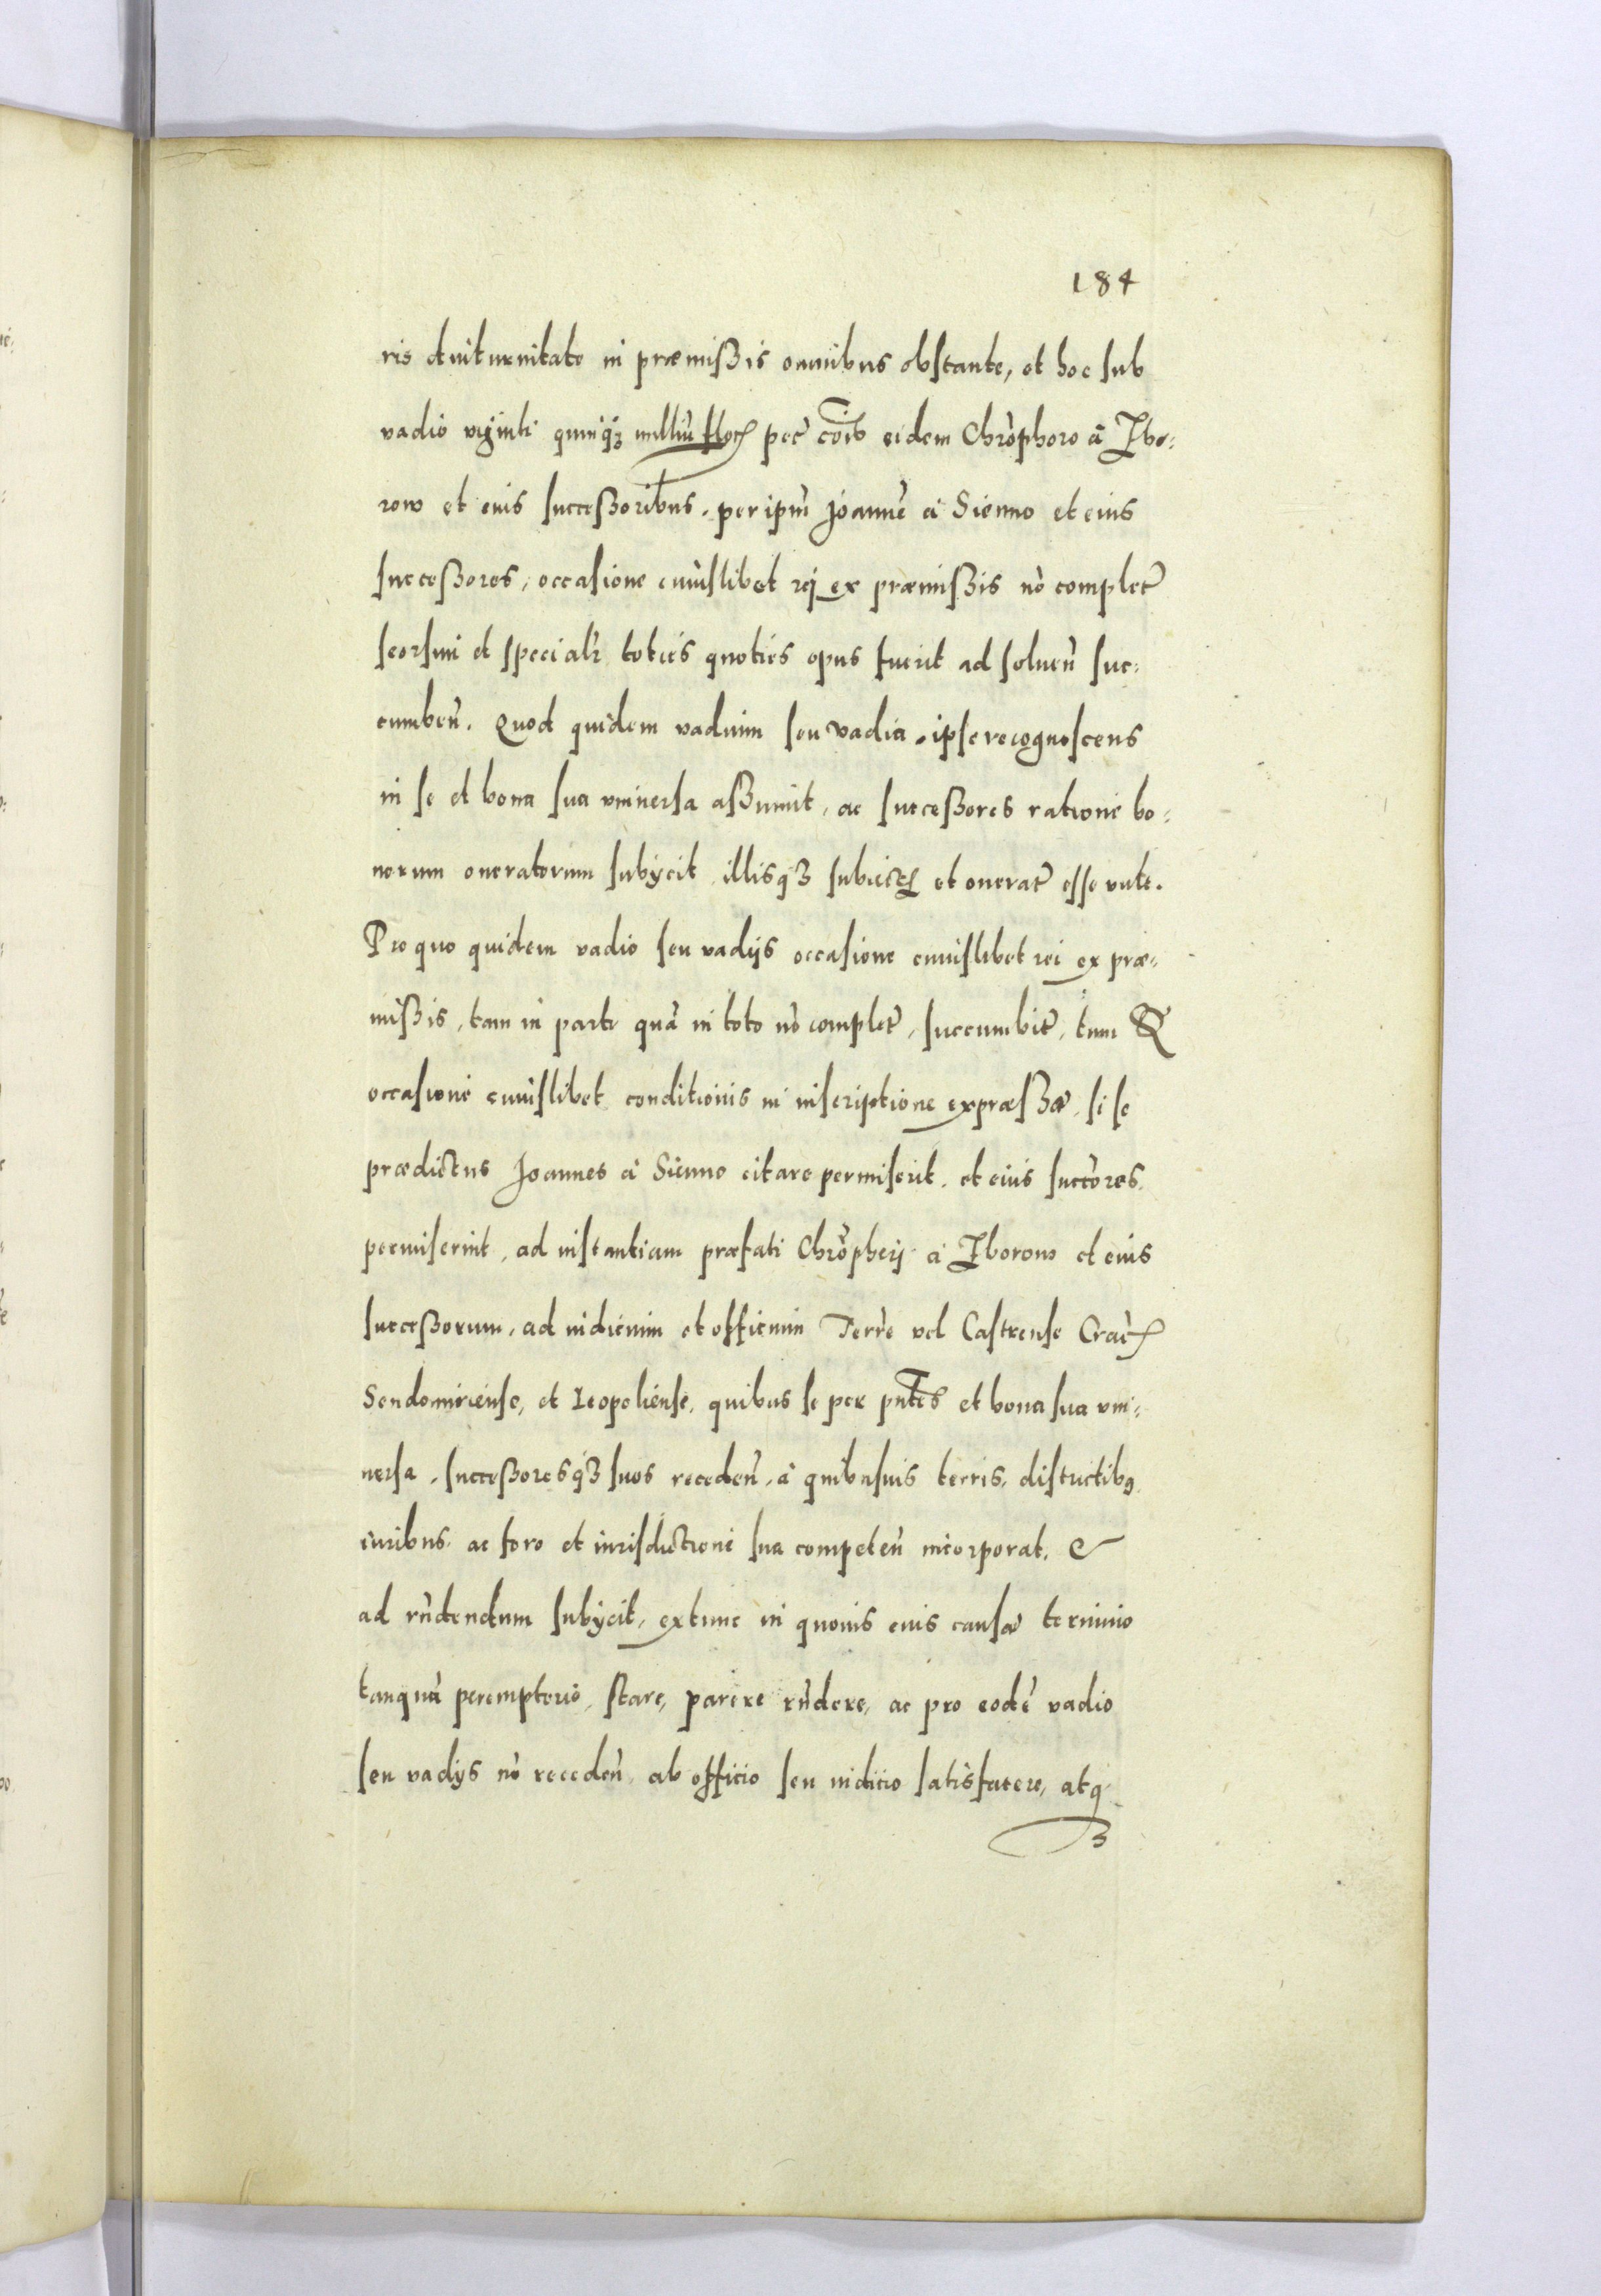 184
ris diuturnitate in præmissis omnibus obstante, et hoc sub
vadio viginti quinq3 milliũ flor pec̃ cõib eidem Chrõphoro à Zbo:
row et eius successoribus, per ipm̃ Joannẽ à Sienno et eius
successores, occasione cuiuslibet rei ex præmissis nõ complet̃
seorsim et speciałr toties quoties opus fuerit ad soluen̄ suc:
cumben̄. Quod quidem vadium seu vadia, ipse recognoscens
in se et bona sua vniuersa assumit, ac successores ratione bo:
norum oneratorum subÿcit, illisq3 subiect et onerat̃ esse vult.
Pro quo quidem vadio seu vadijs occasione cuiuslibet rei ex præ:
missis, tam in parte quã in toto nõ complet̃, succumbit̃, tum &
occasione cuiuslibet conditionis in inscriptione expræssæ, si se
prædictus Joannes à Sienno citare permiserit, et eius succõres
permiserint, ad instantiam præfati Chrõphori à Zborow et eius
successorum, ad iudicium et officium Terr̃e vel Castrense Crac̃
Sendomiriense, et Leopoliense, quibus se per pñtes et bona sua vni:
uersa, successoresq3 suos receden̄, à quibusuis terris, districtibq
iuribus, ac foro et iurisdictione sua competen̄ incorporat, &
ad rñdendum subÿcit, extunc in quouis eius causæ termino
tanquã peremptorio, stare, parere rñdere, ac pro eodẽ vadio
seu vadÿs nõ receden̄, ab officio seu iudicio satisfacere, atq3